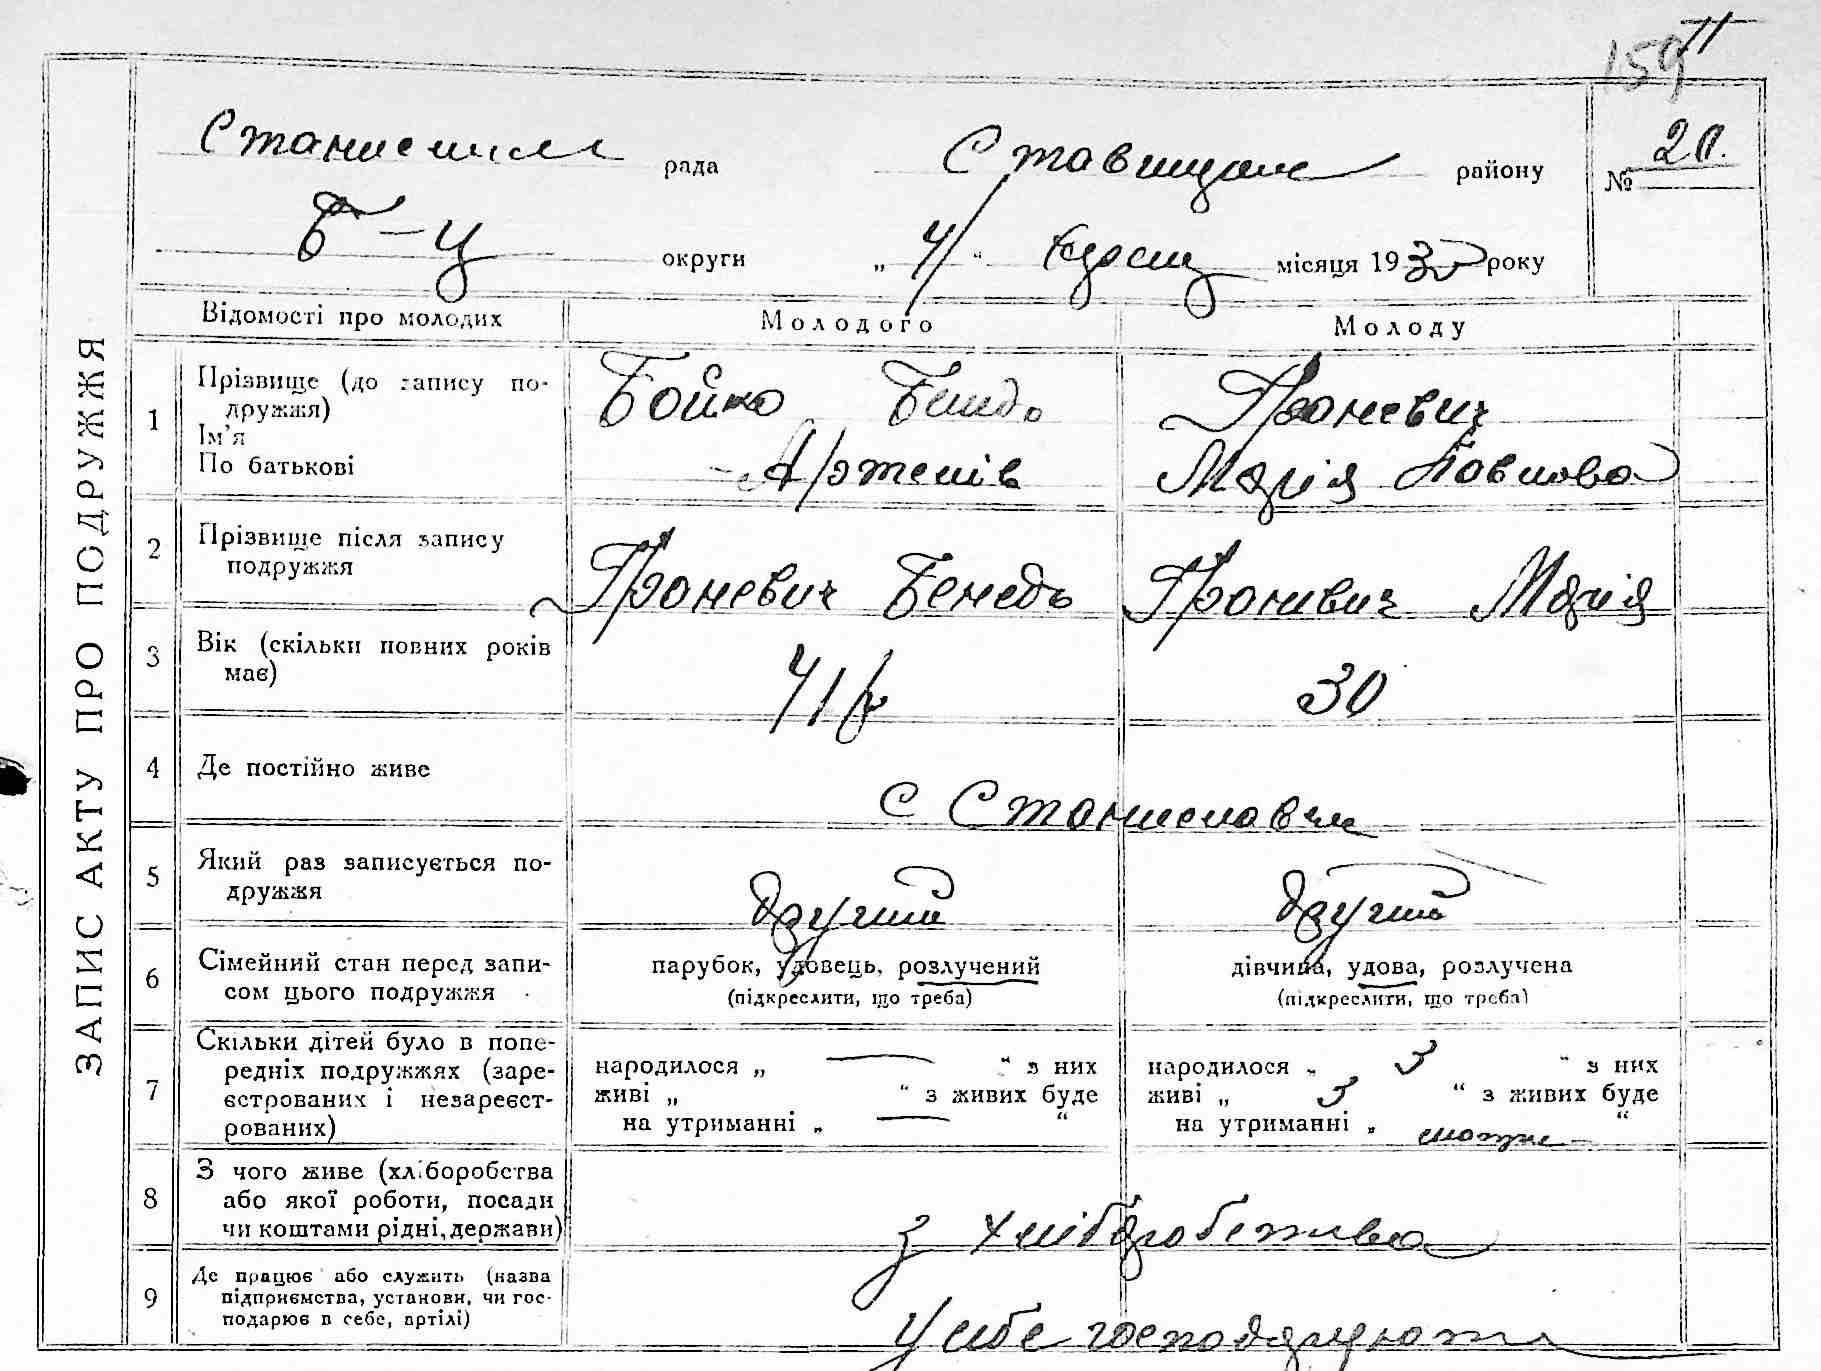 159
11
Станислав рада Ставищан району № 20.
Б-Ц округи „4“ березц місяця 1930 року
ЗАПИС АКТУ ПРО ПОДРУЖЖЯ
Відомості про молодих Молодого Молоду
1 Прізвище (до запису подружжя)
Ім’я
По батькові
Бойко
Артемів
Проневич
Марія Павлова
2 Прізвище після запису
подружжя
Проневич Бенедь Проневич Марія
3 Вік (скільки повних років
має)
41 30
4 Де постійно живе
С Станиславчик
5 Який раз записується по-
дружжя
другий другий
6 Сімейний стан перед запи-
сом цього подружжя
парубок, удовець, розлучений дівчина, удова, розлучена
(підкреслити, що треба) (підкреслити, що треба)
7 Скільки дітей було в попе-
редніх подружжях (заре-
єстрованих і незареєст-
рованих)
народилося „ — “ з них народилося „ 3 “ з них
живі „ “ з живих буде живі „ 3 “ з живих буде
на утриманні „ — “ на утриманні „ “
8 З чого живе (хліборобства
або якої роботи, посади
чи коштами рідні, держави)
з хліборобства
9 Де працює або служить (назва
підприємства, установи, чи гос-
подарює в себе, артілі)
У себе господарюють